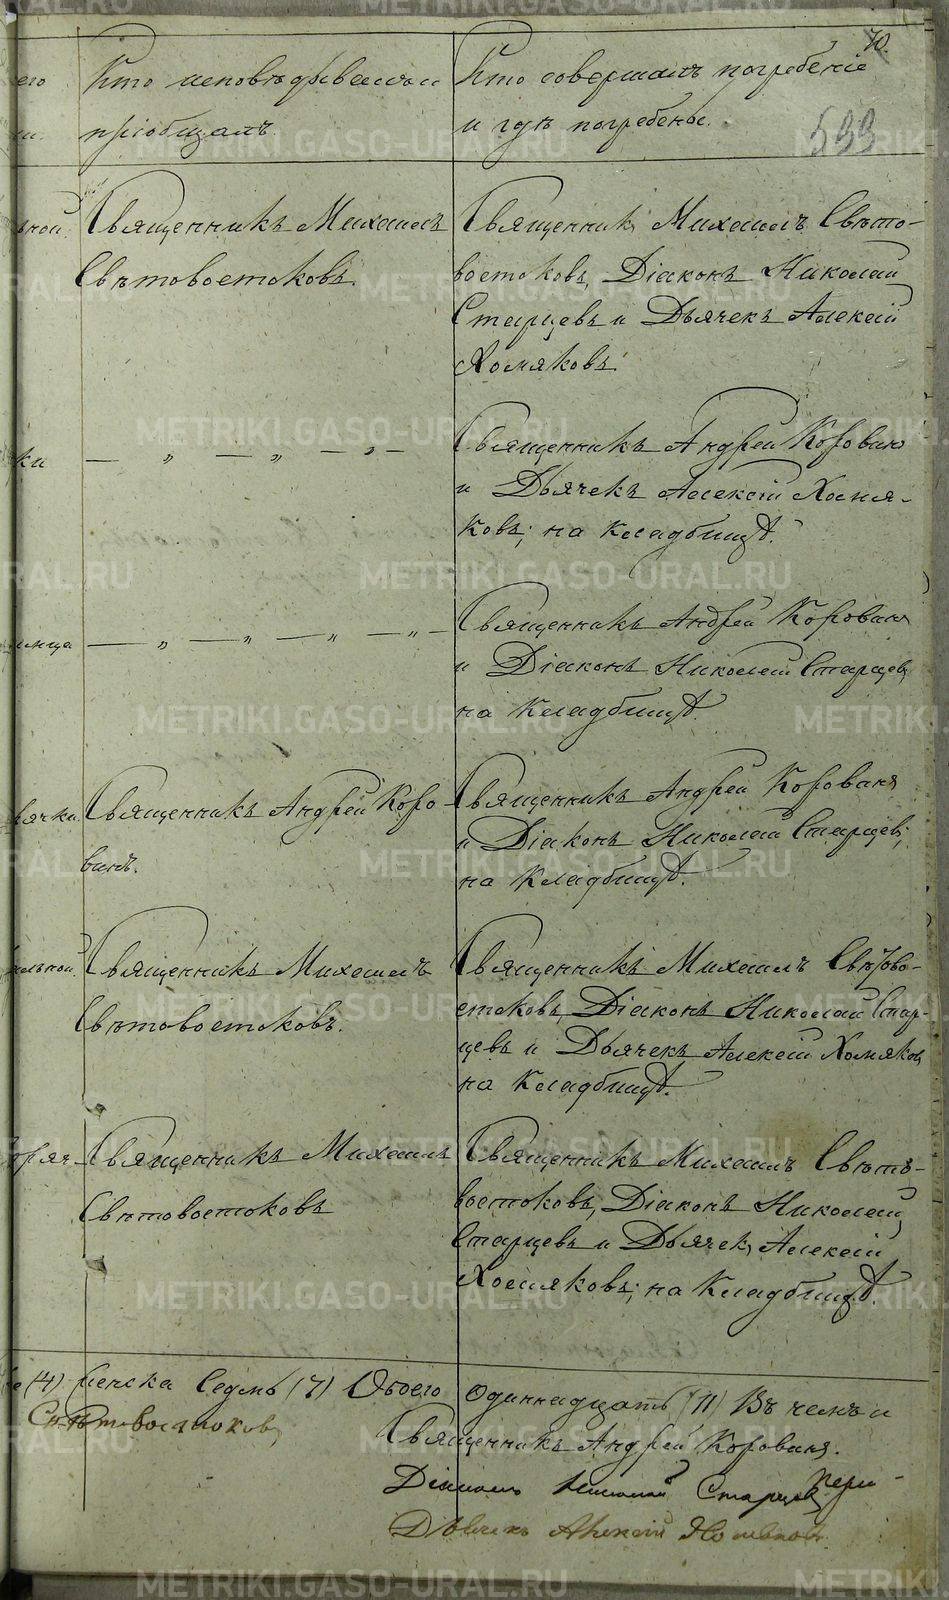 70.
599
его Кто исповѣдывалъ и
пріобщалъ.
Кто совершалъ погребеніе
и гдѣ погребены.
ной. Священникъ Михаилъ
Свѣтовостоковъ.
Священникъ Михаилъ Свѣто-
востоковъ, Діаконъ Николай
Старцевъ и Дьячекъ Алексій
Хомяковъ.
ки — „ — „ — „ —
Священникъ Андрей Коровинъ
и Дьячекъ Алексій Хомя-
ковъ; на Кладбищѣ.
— „ — „ — „ — „ —
Священникъ Андрей Коровинъ
и Діаконъ Николай Старцевъ,
на Кладбищѣ.
ячки. Священникъ Андрей Коро-
винъ.
Священникъ Андрей Коровинъ
и Діаконъ Николай Старцевъ;
на Кладбищѣ.
льной. Священникъ Михаилъ
Свѣтовостоковъ.
Священникъ Михаилъ Свѣтово-
стоковъ, Діаконъ Николай Стар-
цевъ и Дьячекъ Алексій Хомяковъ
на Кладбищѣ.
горяч. Священникъ Михаилъ
Свѣтовостоковъ
Священникъ Михаилъ Свѣто-
востоковъ, Діаконъ Николай
Старцевъ и Дьячекъ Алексій
Хомяковъ; на Кладбищѣ.
(4) женска Седмь (7) Обоего Одиннадцать (11) Въ чемъ и
Свѣтовостоковъ
Священникъ Андрей Коровинъ.
Діаконъ Николай Старцевъ
Дьячекъ Алексій Хомяковъ
METRIKI.GASO-URAL.RU